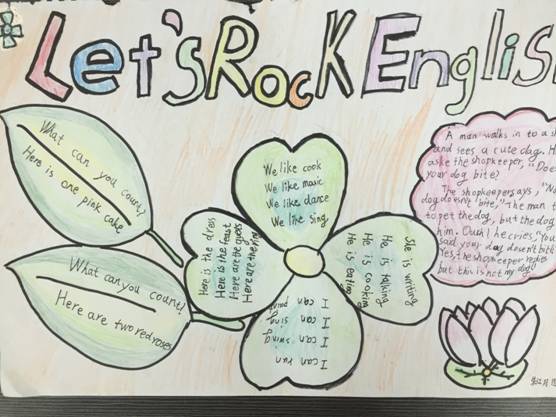 Let's Rock English
What can you count?
Here is one pink cake
What can you count?
Here are two red roses
We like cook
We like music
We like dance
We like sing
Here is the dress
Here is the feast
Here are the gods
Here are the
She is writing
He is talking
He is cooking
He is eating
I can run
I can swing
I can sing
I can
A man walks in to a
and sees a cute dag. H
ask the shopkeeper, "Does
your dog bite?
The shopkeepers says, "N
dog doesn't bite," The man t
to pet the dog, but the dog
him. Ouch! he cries "You
said your dog doesn't bit
Yes, the shopkeeper replies
but this is not my dog!